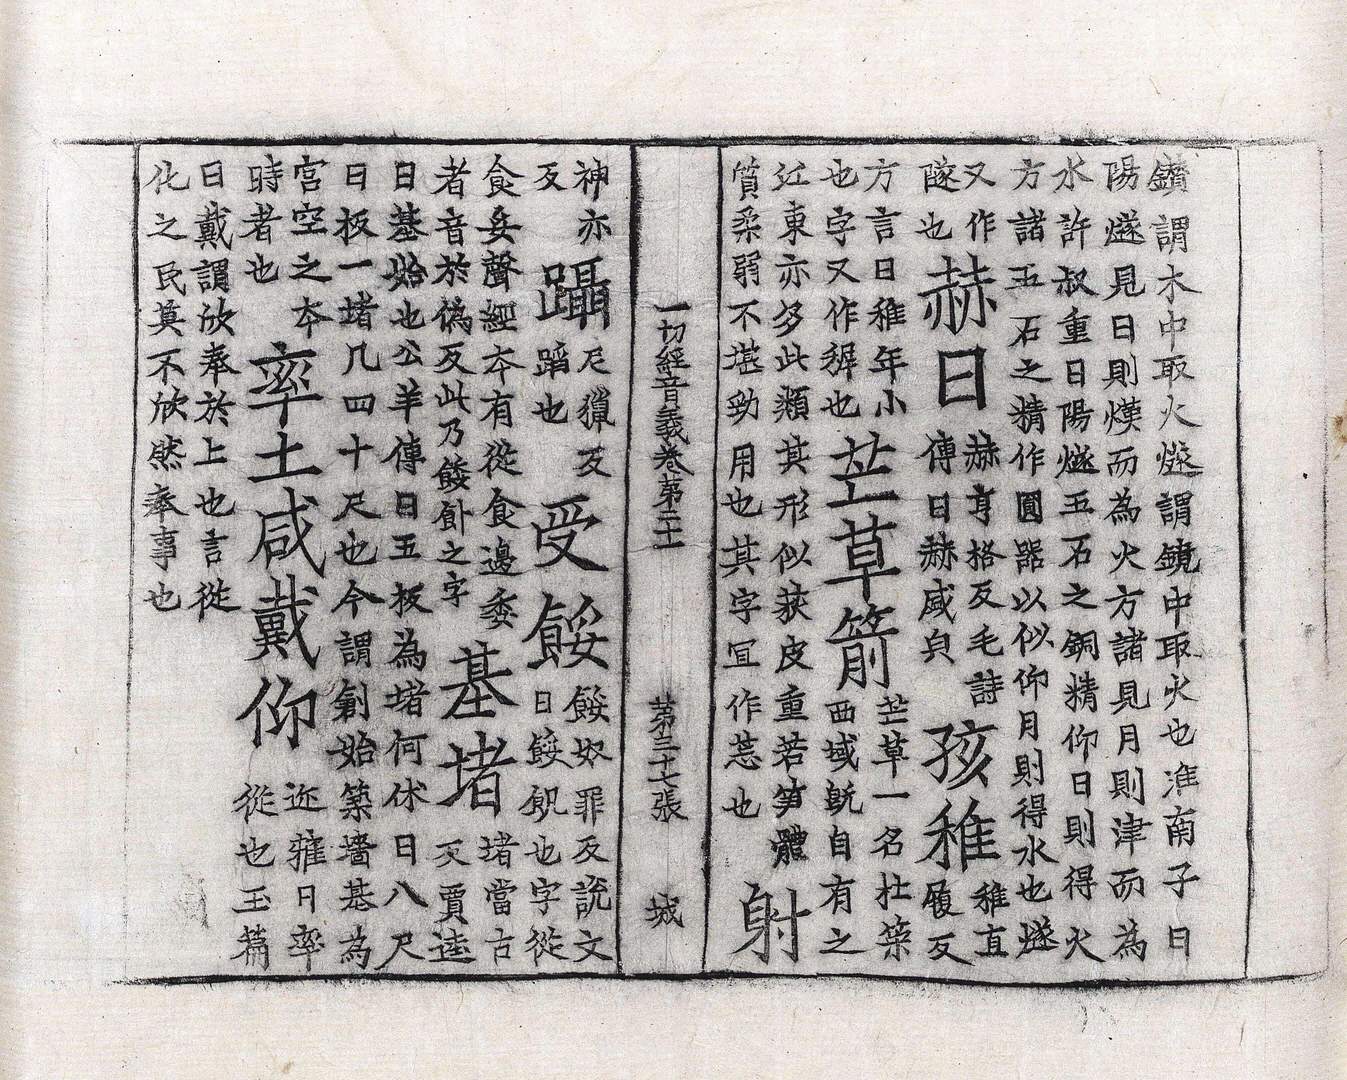 鑽謂木中取火燧謂鏡中取火也淮南子曰
陽燧見日則㷸而為火方諸見月則津而為
水許叔重曰陽燧五石之銅精仰日則得火
方諸五石之精作圓器以似仰月則得水也燧
又作
䥙也
赫日
赫亨格反毛詩
傳曰赫盛皃
孩稚
稚直
履反
方言曰稚年小
也字又作稺也
芏草箭
芏草一名杜榮
西域既自有之
江東亦多此類其形似荻皮重若笋體
質柔弱不堪勁用也其字宜作也
射
一切經音義卷第二十一 第三十七張 城
神亦
反
躡
尼獵反
蹈也
受餧
餧奴罪反說文
曰餧飢也字從
食妥聲經本有從食邊委
者音於偽反此乃餧飤之字
基堵
堵當古
反賈逵
曰基始也公羊傳曰五板為堵何休曰八尺
曰板一堵凡四十尺也今謂創始築墻基為
宮空之本
時者也
率土咸戴仰
迩雅曰率
從也玉篇
曰戴謂欣奉於上也言從
化之民莫不欣然奉事也